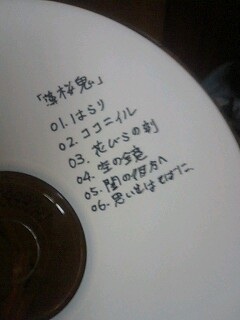 「薄桜鬼」
01. はらり
02. ココニイル
03. 花びらの刻
04. 空の鏡
05. 闇の彼方へ
06. 思いをはせばに